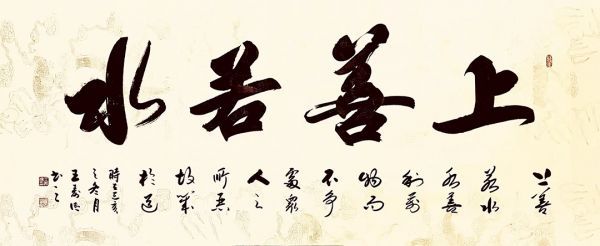 上善若水
上善
若水
水善
利萬
物而
不争
處衆
人之
所惡
故幾
於道
之冬月